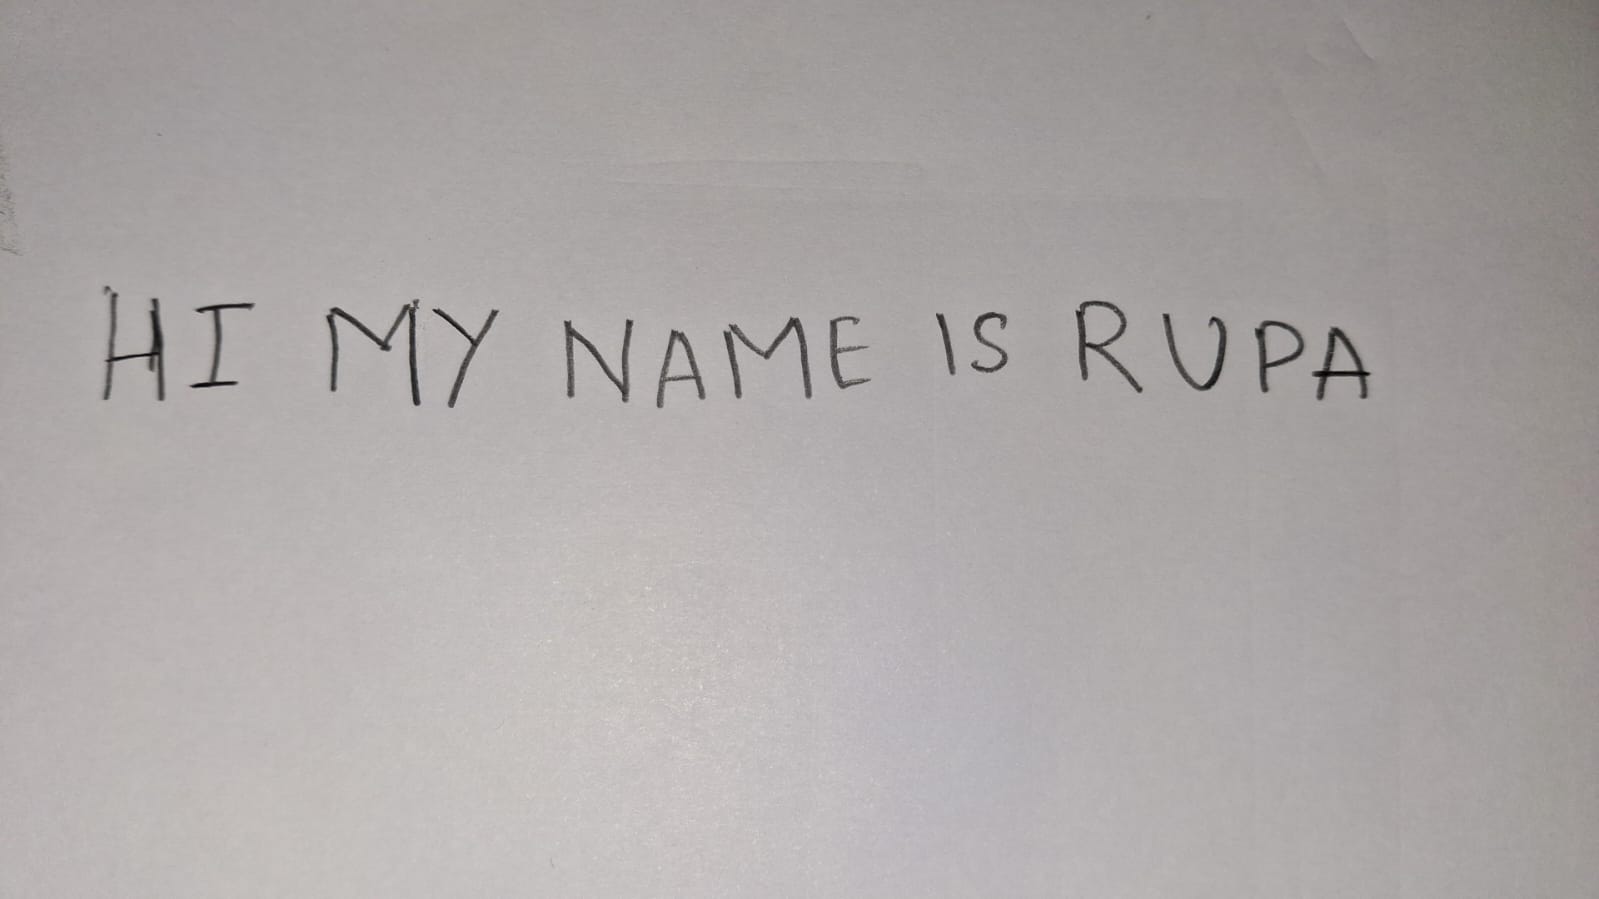 HI MY NAME IS RUPA